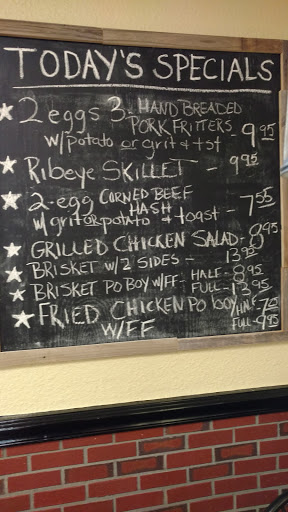 TODAY'S SPECIALS
2 eggs 3- HAND BREADED
PORK FRITTERS
w/potato or grit & tst - 9 95
Ribeye SKILLET - 9 95
2-egg CORNED BEEF
HASH - 7 55
w/ grit or potato & toast
GRILLED CHICKEN SALAD - 8 95
BRISKET W/2 SIDES - 13 95
BRISKET PO BOY W/FF - HALF - 8 95
FULL - 13 95
FRIED CHICKEN PO boy
W/FF
HALF 7 50
FULL - 9 95